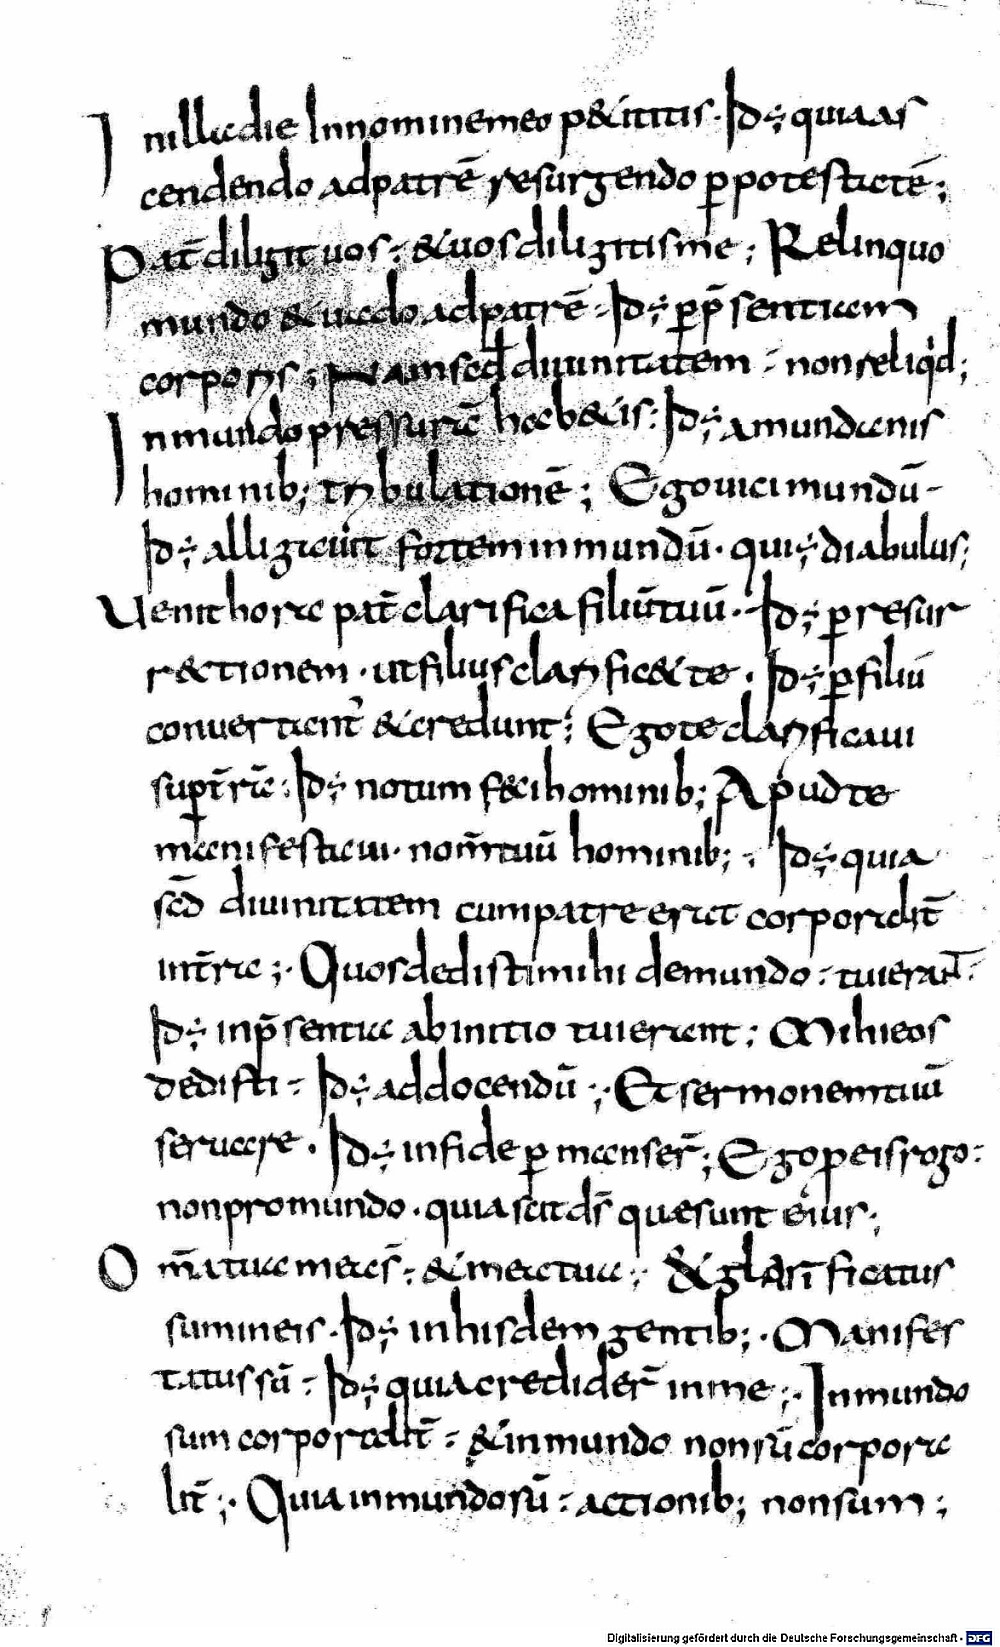 In illa die In nomine meo p&itis · Id ÷ quia as
cendendo ad patrē resurgendo p̱ potestatē ;
Pat̄ diligit uos : & uos diligitis me ; Relinquo
mundo & uado ad patrē · Id ÷ p̱ p̄sentiam
corporis ; Nam scd̄ diuinitatem · non reliqͥd ;
In mundo pressurā hab&is : Id ÷ a mundanis
hominib; tribulationē ; Ego uici mundū ·
Id ÷ alligauit fortem in mundū · qui ÷ diabulus ;
Uenit hora pat̄ clarifica filiū tuū · Id ÷ p̱ resur
r&tionem · ut filius clarific& te · Id ÷ p̱ filiū
conuertant̄ & credunt ; Ego te clarificaui
sup̱ t̄rā : Id ÷ notum feci hominib; Apud te
manifestaui · nom̄ tuū hominib; · Id ÷ quia
scd̄ diuinitatem cum patre erat corporalit̄
in t̄ra ; · Quos dedisti mihi de mundo : tui erant̄ :
Id ÷ in p̄sentia ab initio tui erant ; Mihi eos
dedisti : Id ÷ ad docendū ; · Et sermonem tuū
seruare · Id ÷ in fide p̱manser̄ ; Ego p̱ eis rogo :
non pro mundo · quia scit ds̄ quae sunt eius ;
Om̄a tua mea s̄ ; & mea tua ; & glarificatus
sum in eis · Id ÷ in hisdem gentib; · Manifes
tatus sū : Id ÷ quia credider̄ in me ; · In mundo
sum corporalit̄ : & in mundo non sū corpora
lit̄ ; · Quia in mundo sū : actionib; non sum ;
Digitalisierung gefördert durch die Deutsche Forschungsgemeinschaft - DFG